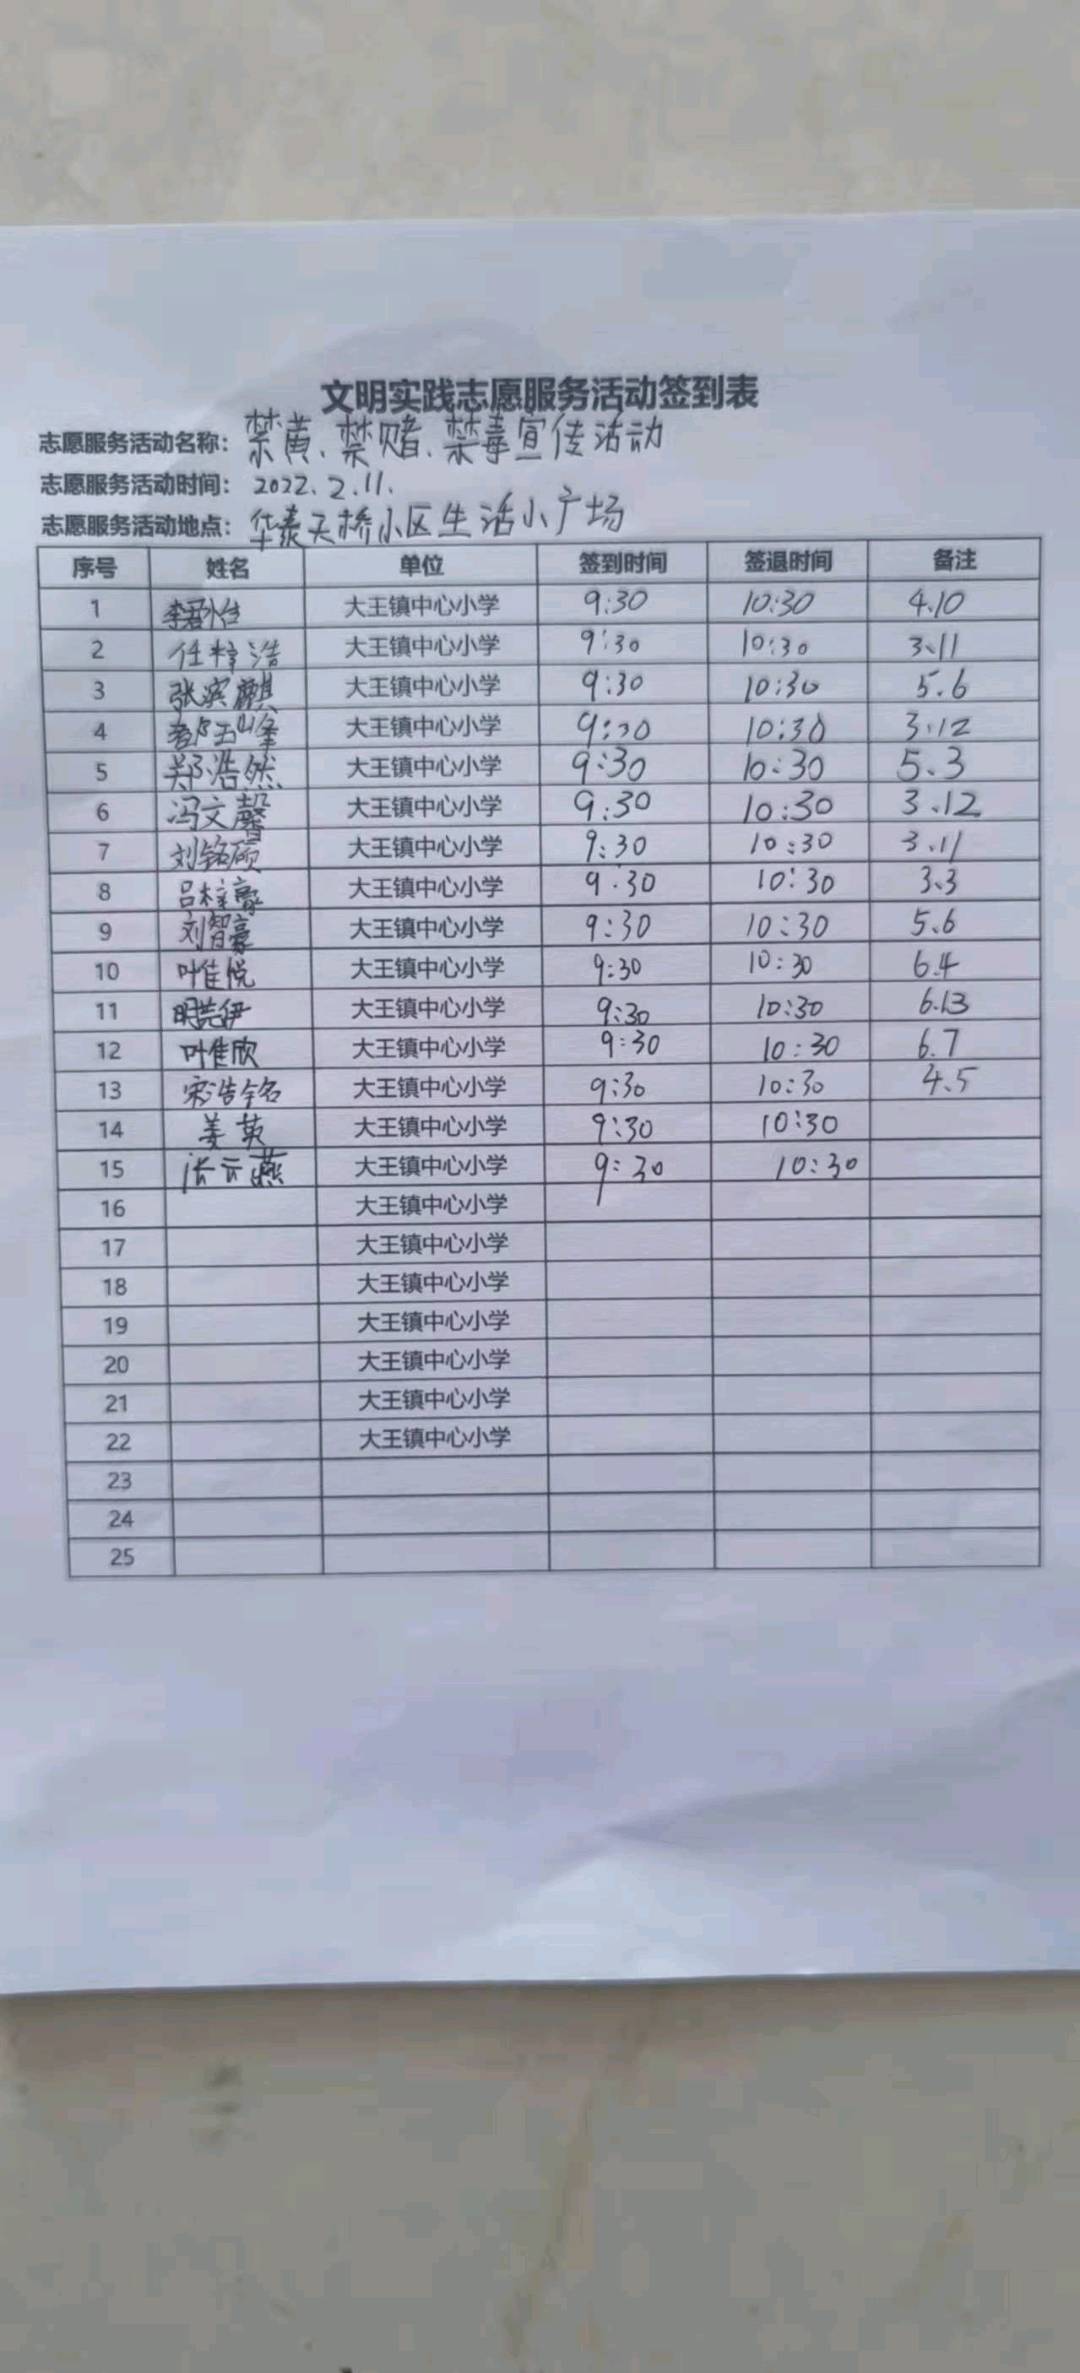 文明实践志愿服务活动签到表
志愿服务活动名称：禁黄、禁赌、禁毒宣传活动
志愿服务活动时间：2022.2.11.
志愿服务活动地点：华泰天桥小区生活小广场
序号 姓名 单位 签到时间 签退时间 备注
1 李君怡 大王镇中心小学 9:30 10:30 4.10
2 任梓浩 大王镇中心小学 9:30 10:30 3.11
3 张滨麒 大王镇中心小学 9:30 10:30 5.6
4 大王镇中心小学 9:30 10:30 3.12
5 郑浩然 大王镇中心小学 9:30 10:30 5.3
6 冯文馨 大王镇中心小学 9:30 10:30 3.12
7 刘铭硕 大王镇中心小学 9:30 10:30 3.11
8 吕梓豪 大王镇中心小学 9:30 10:30 3.3
9 刘智豪 大王镇中心小学 9:30 10:30 5.6
10 叶佳悦 大王镇中心小学 9:30 10:30 6.4
11 大王镇中心小学 9:30 10:30 6.13
12 叶佳欣 大王镇中心小学 9:30 10:30 6.7
13 宋浩铭 大王镇中心小学 9:30 10:30 4.5
14 姜英 大王镇中心小学 9:30 10:30
15 张云燕 大王镇中心小学 9:30 10:30
16 大王镇中心小学
17 大王镇中心小学
18 大王镇中心小学
19 大王镇中心小学
20 大王镇中心小学
21 大王镇中心小学
22 大王镇中心小学
23
24
25